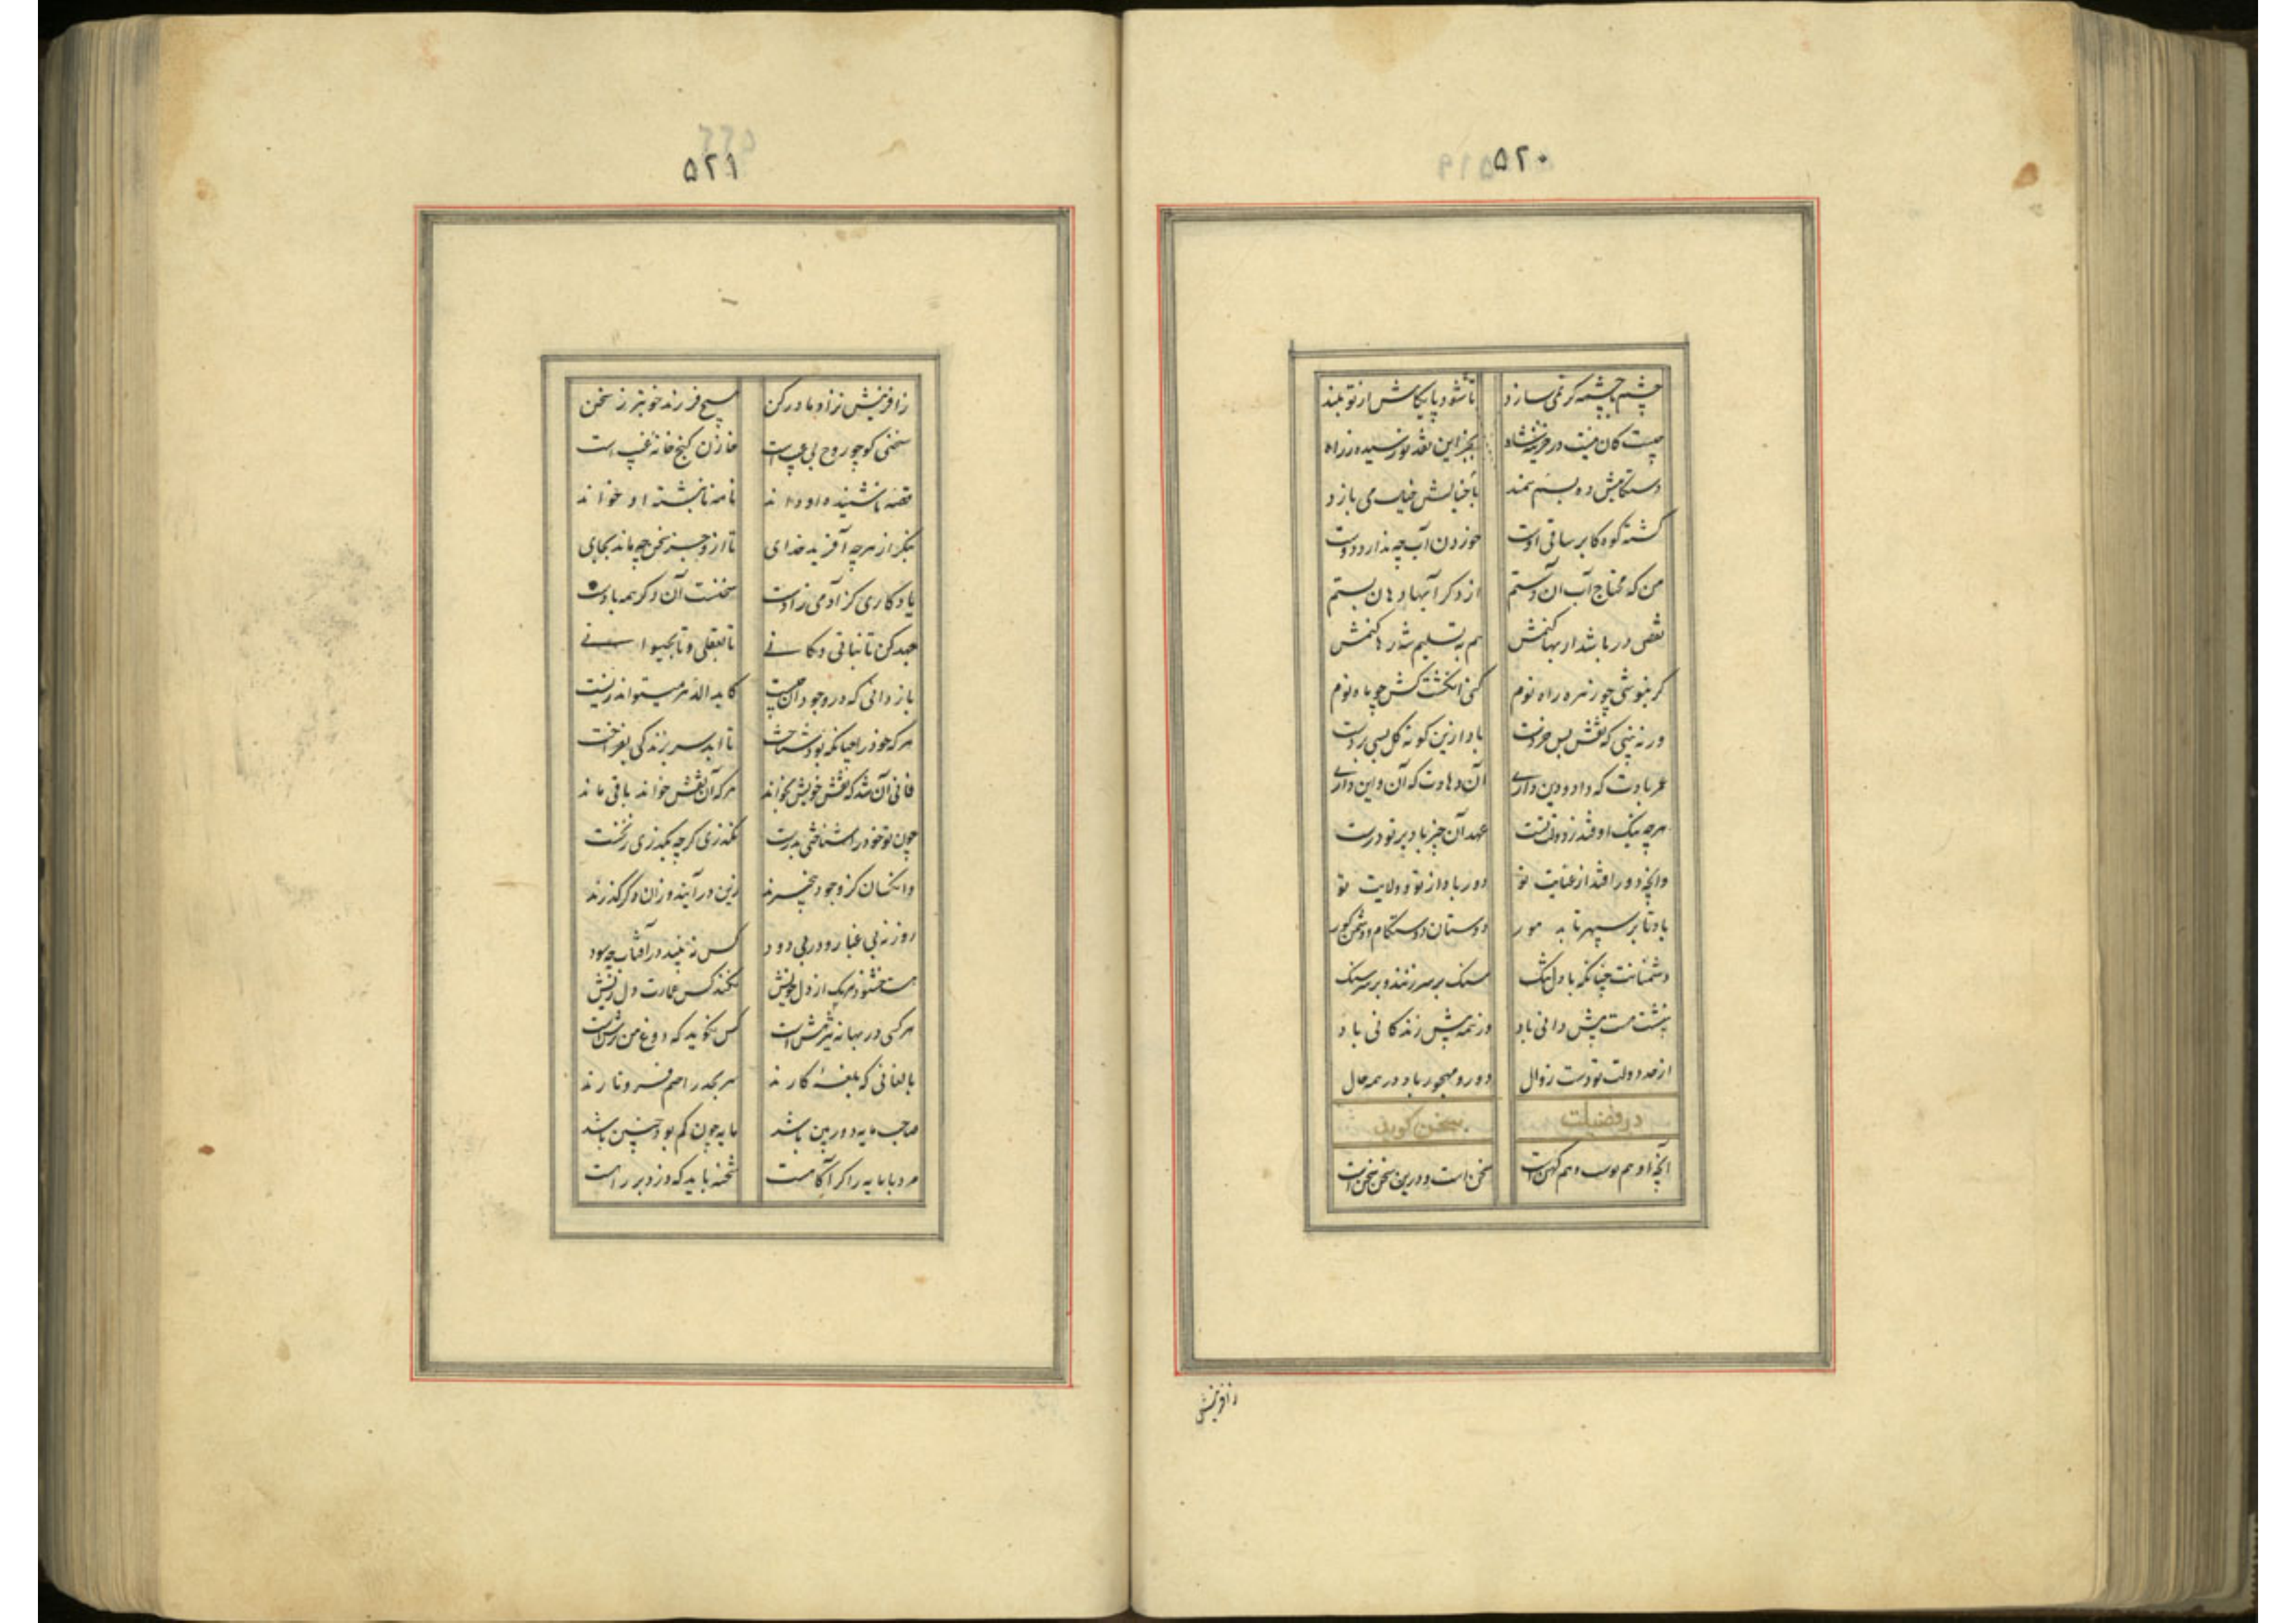 ۵۲۰
چشم با چشمه کر نمی سازد تا شود پایکاهش از تو بلند
چیست کان نیست در خزینه شاه بجز این نقد نورسیده ز راه
دستکاهیش ده بسم سمند با خیالش خیال می بازد
کشته کوه کابر ساقی اوست خوردن آب چه ندارد دوست
من که محتاج آب آن دستم از دکر آبها دهان بستم
نقص در باشد ار بها کنمش هم به تسلیم شه رها کنمش
کر نیوشی چو زهره راه نوم کنی انکشت کش چو ماه نوم
ور نه بینی که نقش بس خردست باد ازین کونه کل بسی بردست
عمر بادت که داد و دین داری آن دهادت که آن و این داری
هرچه نیک اوفتد ز دولت تست عهد آن چیز باد بر تو درست
وانچه دور افتد از عنایت تو دور باد از تو و ولایت تو
باد تا بر سپهر تابد هور دوستان دوستکام و دشمن کور
دشمنانت چنانکه با دل تنک سنک بر سر زنند و بر سر سنک
بیشتت هست بیش دانی باد وز همه بیش زندکانی باد
از حد دولت تو دست زوال دور و مهجور باد در همه حال
در فضیلت سخن کوید
آنچه او هم نوست و هم کهن است سخن است و درین سخن سخن است
زافرینش
۵۲۱
زافرینش نزاد مادر کن هیچ فرزند خوبتر ز سخن
سخنی کو چو روح بی عیب است خازن کنج خانه غیب است
قصه ناشنیده او داند نامه نانبشته او خواند
بنکر از هرچه آفرید خدای تا ازو جز سخن چه ماند بجای
یادکاری کز آدمی زادست سخنست آن دکر همه بادست
جهد کن تا نباتی و کانی تا بعقلی و تا بحیوانی
باز دانی که در وجود آن چیست کابد الدهر میتواند زیست
هر که خود را چنانکه بود شناخت تا ابد سر بزندکی بفراخت
فانی آن شد که نقش خویش نخواند هر که آن نقش خواند باقی ماند
چون تو خود را شناختی بدرست نکذری کرچه بکذری ز نخست
وانکسان کز وجود بیخبرند زین در آیند و زان دکر کذرند
روزنه بی غبار و در بی دود کس نه بیند در آفتاب چه سود
هست خشنود هر یک از دل خویش نکند کس عمارت دل ریش
هر کسی در بهانه تیزهش است کس نکوید که دوغ من ترش است
بالغانی که بلغه کارند سر بجذر اصم فرو نارند
صاحب مایه دوربین باشد مایه چون کم بود چنین باشد
مرد با مایه را کر آکاهست شحنه باید که دزد بر راهست